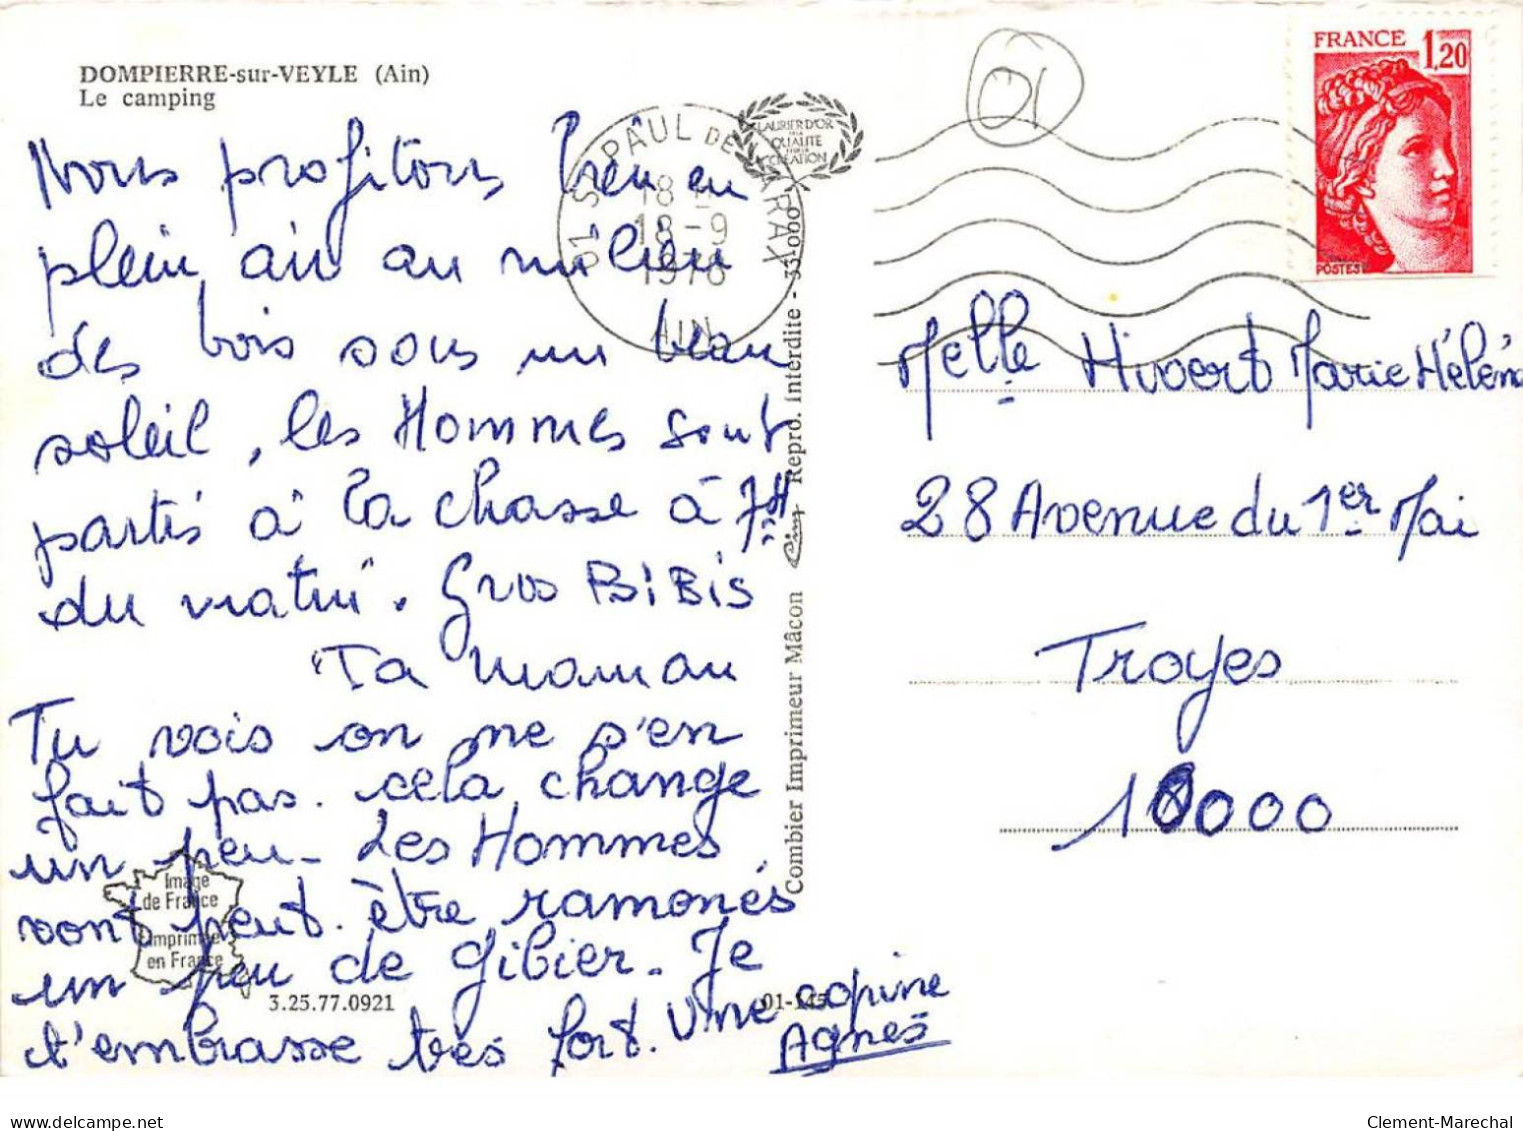 DOMPIERRE-sur-VEYLE (Ain)
Le camping
Nous profitons bien en
plein air au milieu
des bois sous un beau
soleil, les Hommes sont
partis à la chasse à 7H
du matin. Gros BiBis
Ta maman
Tu vois on ne s'en
fait pas. cela change
un peu - Les Hommes
vont peut. être ramonés
un peu de gibier. Je
t'embrasse très fort. Une copine
Agnes
01 ST PAUL DE VARAX
18 H
18-9
1978
AIN
LAURIER D'OR
QUALITE
CREATION
Combier Imprimeur Mâcon
Repro. interdite - 35.000
Image
de France
Imprimée
en France
3.25.77.0921
01-145
01
FRANCE 1,20
POSTES
Melle Hivert Marie Hélén
28 Avenue du 1er Mai
Troyes
10000
Clement-Marechal